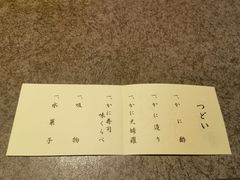 つどい
一、かに酢
一、かに造り
一、かに天婦羅
一、かに寿司
味くらべ
一、吸物
一、水菓子